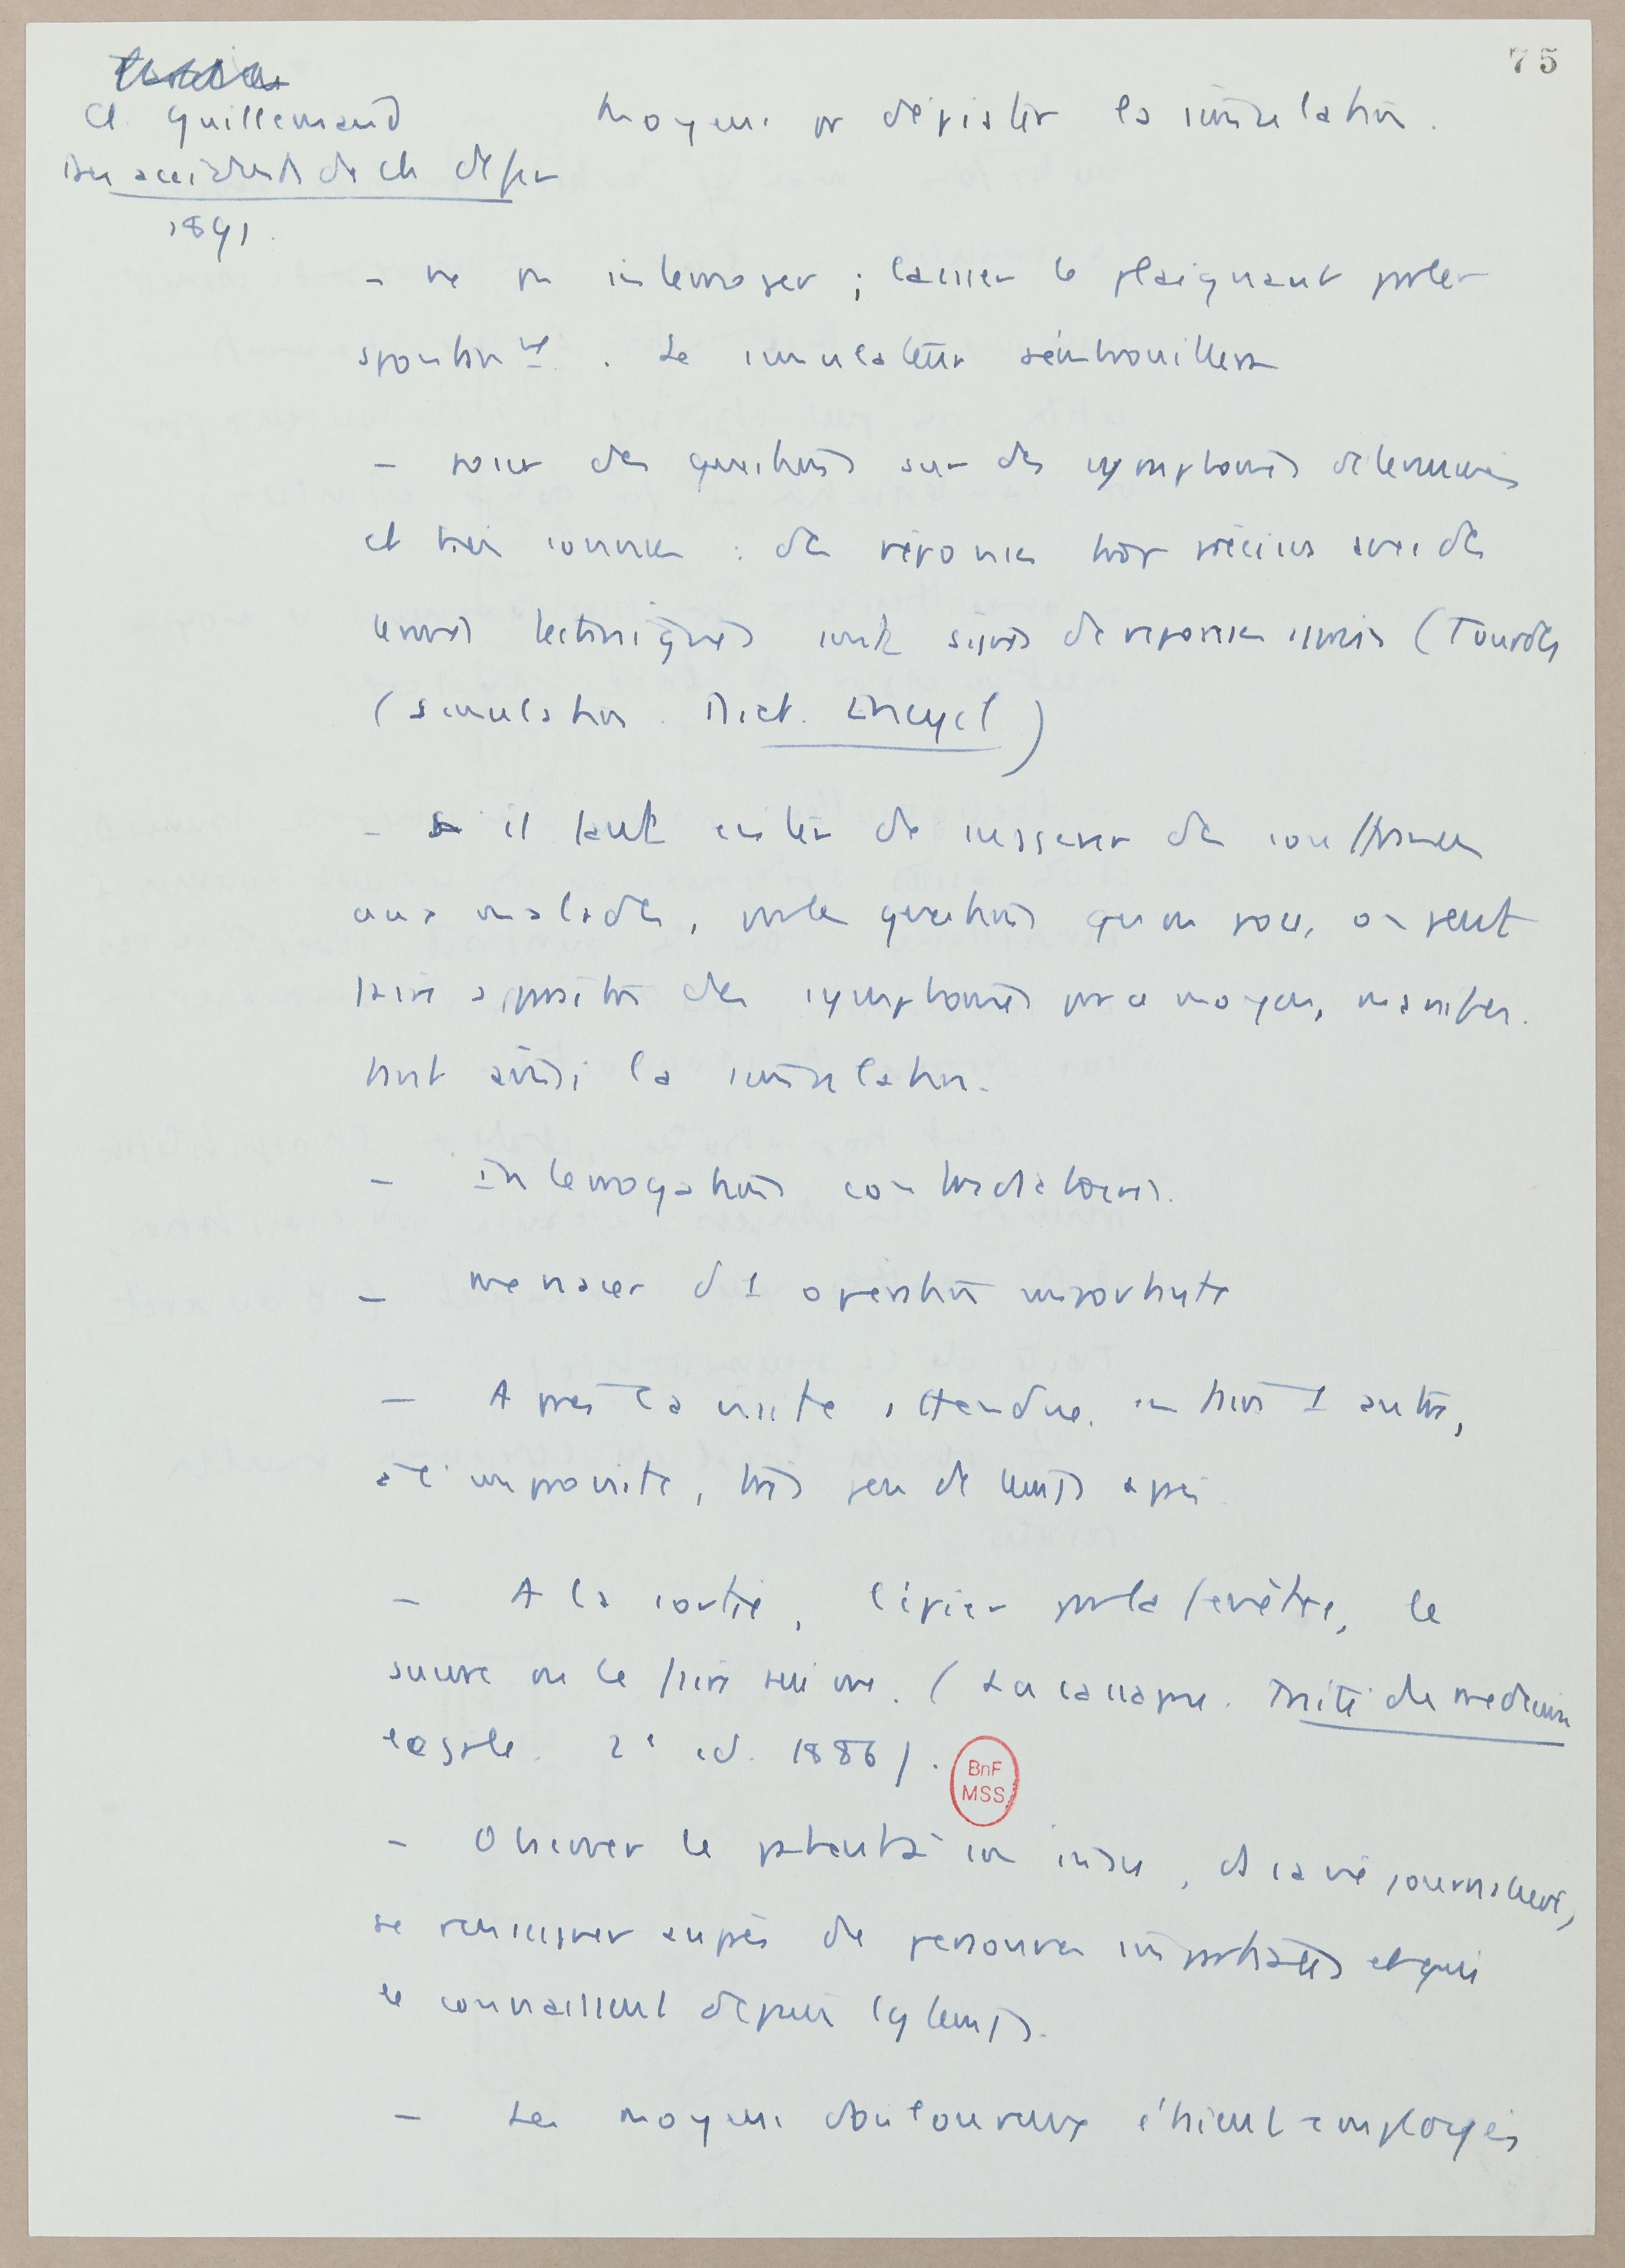 75
Cl. Guillemaud
Des accidents de ch de fer
1891.
Moyens pr dépister la simulation.
- ne pas interroger ; laisser le plaignant parler
spontanmt. Le simulateur s'embrouillera
- poser des questions sur des symptômes déterminés
et bien connus : des réponses trop précises avec des
termes techniques sont signes de réponses apprises (Tourdes
(Simulation. Dict. Encycl)
- il faut éviter de suggérer des souffrances
aux malades, par les questions qu'on pose, on peut
faire apparaître des symptômes par ce moyen, manifes.
tant ainsi la simulation.
- Interrogations contradictoires.
- menacer d'1 opération importante
- Après la visite attendue, en faire 1 autre,
à l'improviste, très peu de temps après
- A la sortie, l'épier par la fenêtre, le
suivre ou le faire suivre. (Lacassagne. Traité de médecine
légale. 2e éd. 1886).
BnF
MSS
- Observer le patient à son insu, ds sa vie journalière,
se renseigner auprès de personnes impartiales et qui
le connaissent depuis lgtemps.
- Les moyens douloureux étaient employés